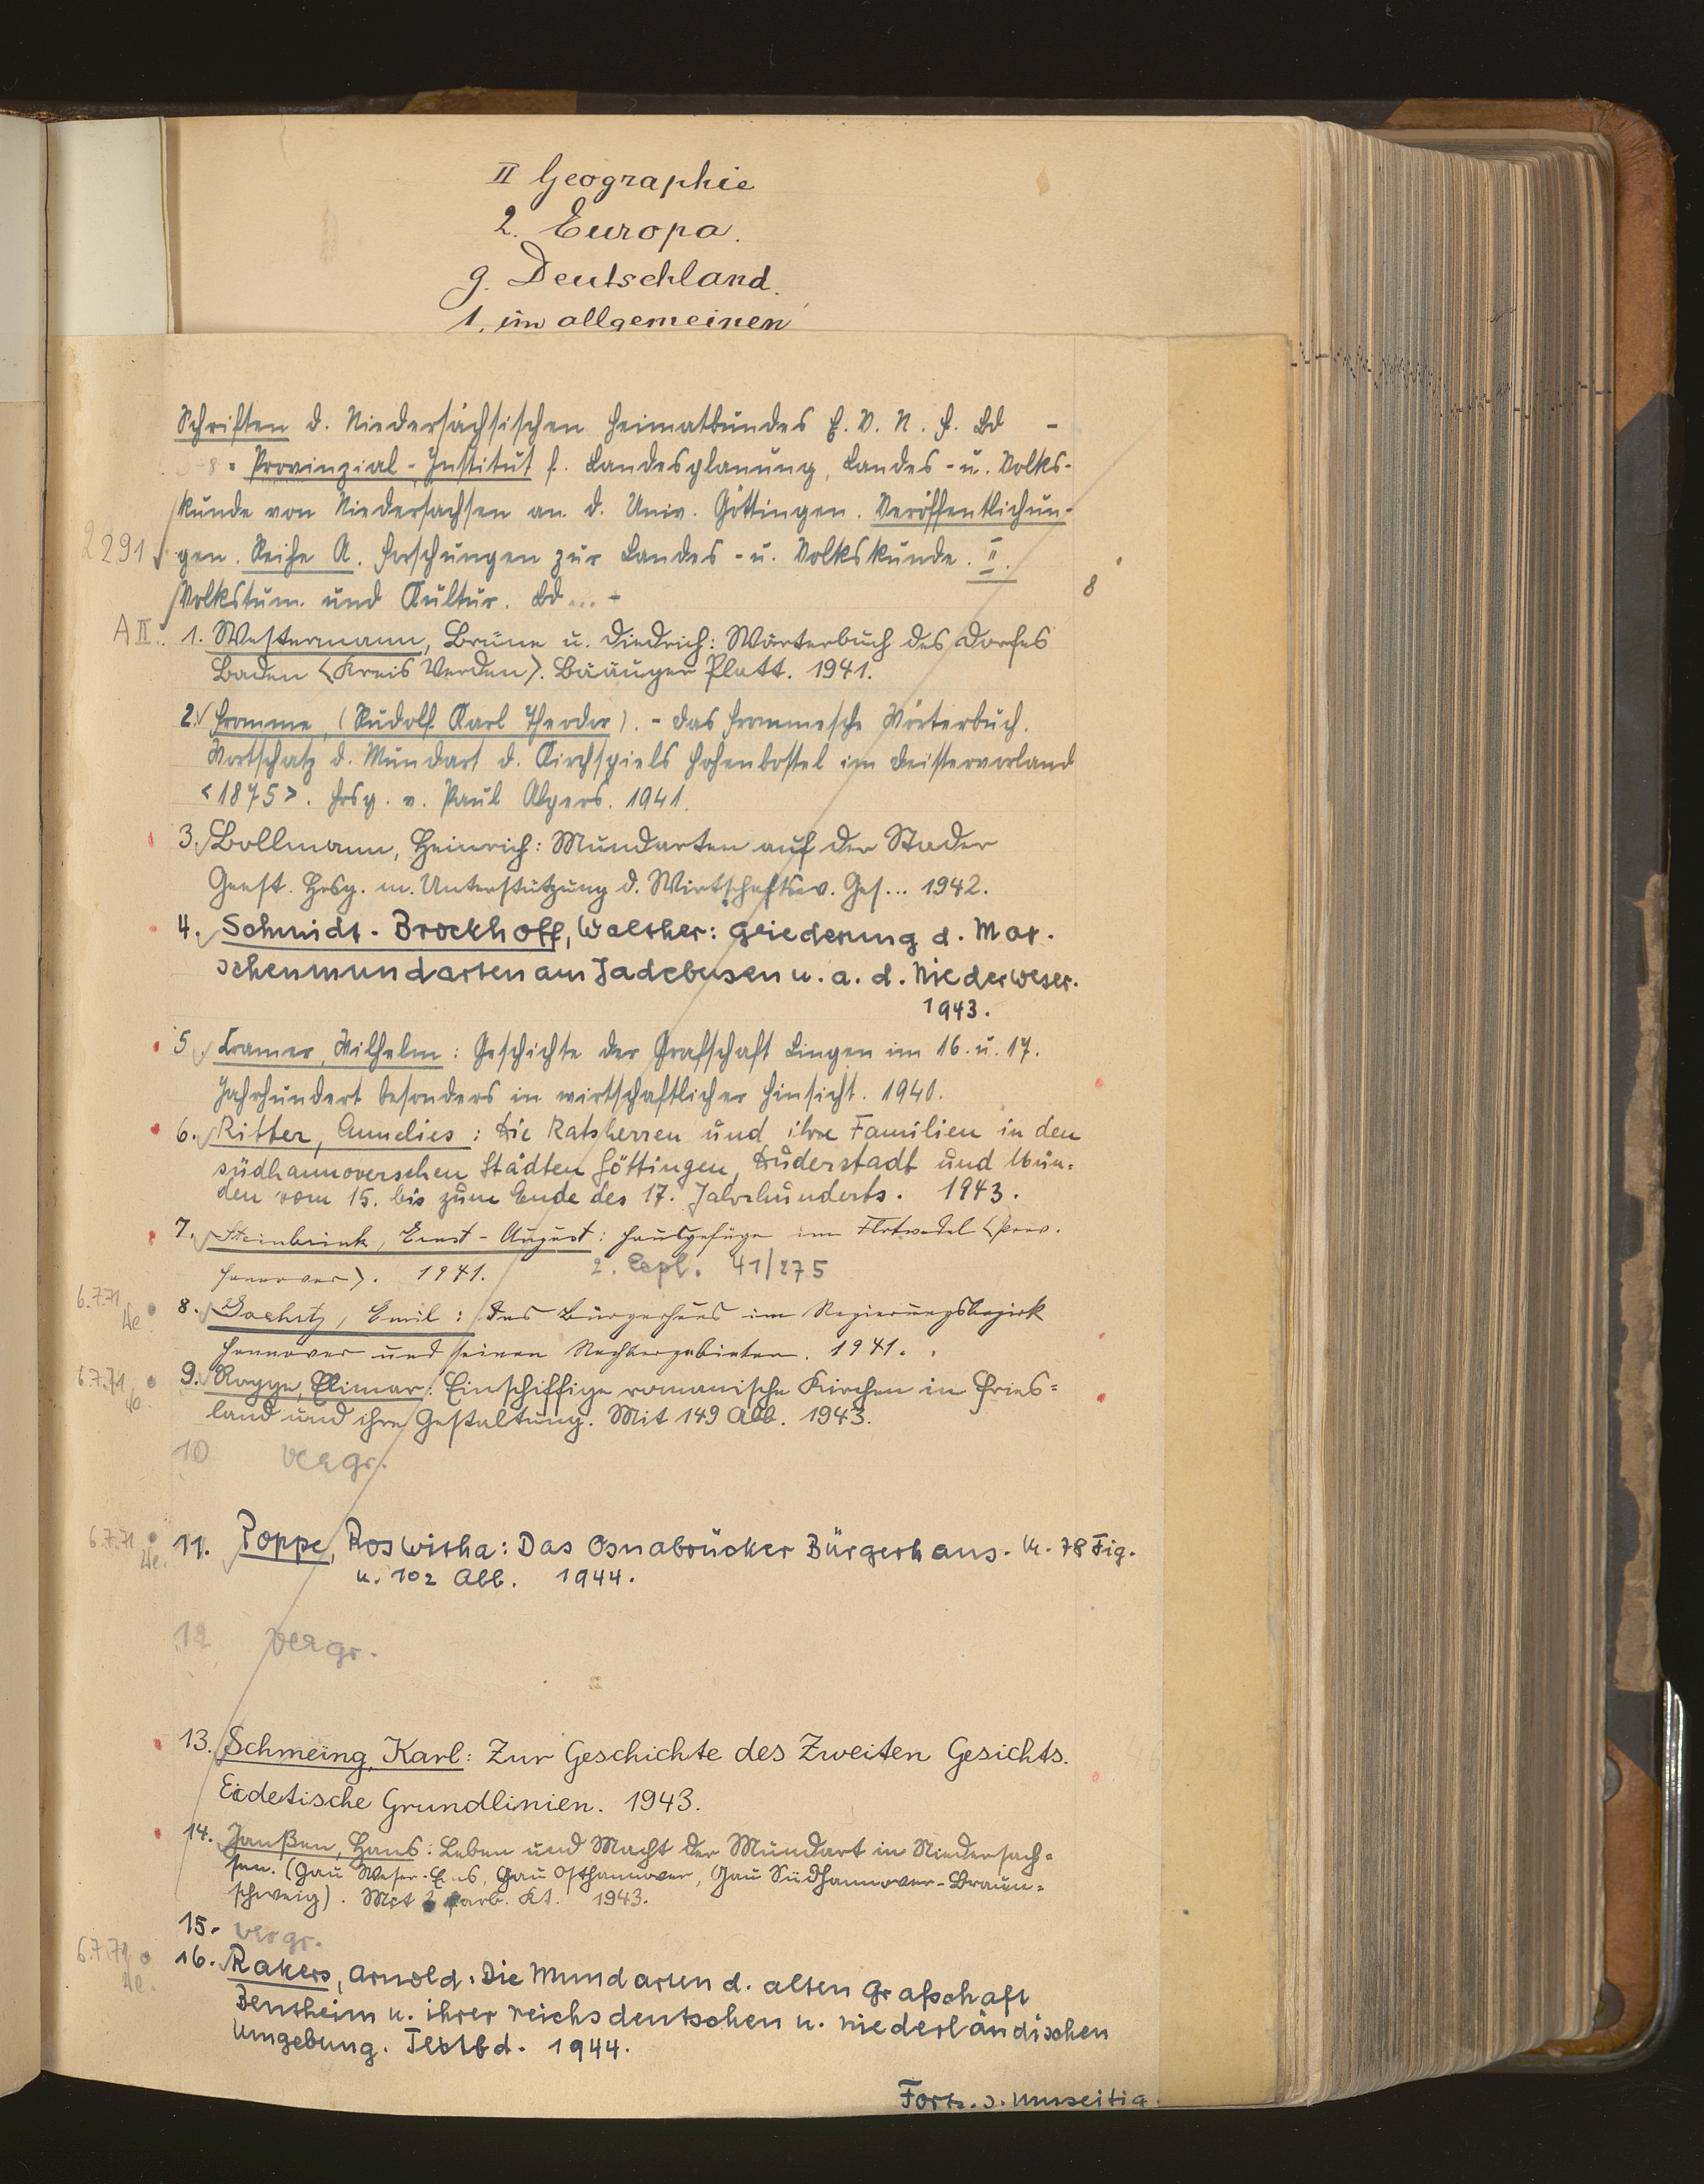 II Geographie
2. Europa.
g. Deutschland.
1. im allgemeinen
Schriften d. Niedersächsischen Heimatbundes E. V. N. F. Bd -
= Provinzial-Institut f. Landesplanung, Landes- u. Volks-
kunde von Niedersachsen an d. Univ. Göttingen. Veröffentlichun-
2291 gen. Reihe A. Forschungen zur Landes- u. Volkskunde. II.
8
Volkstum und Kultur. Bd ... -
A II. 1. Westermann, Brüne u. Diedrich: Wörterbuch des Dorfes
Baden <Kreis Verden>. Bääuger Platt. 1941.
2. Fromme, (Rudolf Karl Theodor). - Das Frommesche Wörterbuch.
Wortschatz d. Mundart d. Kirchspiels Hohenbostel im Deistervorland
<1875>. Hrsg. v. Paul Alpers. 1941.
3. Bollmann, Heinrich: Mundarten auf der Stader
Geest. Hrsg. m. Unterstützung d. Wirtschaftsw. Ges... 1942.
4. Schmidt-Brockhoff, Walther: Gliederung d. Mar-
schenmundarten am Jadebusen u. a. d. Niederweser.
1943.
5. Cramer, Wilhelm: Geschichte der Grafschaft Lingen im 16. u. 17.
Jahrhundert besonders in wirtschaftlicher Hinsicht. 1940.
6. Ritter, Annelies: Die Ratsherren und ihre Familien in den
südhannoverschen Städten Göttingen, Duderstadt und Mün-
den vom 15. bis zum Ende des 17. Jahrhunderts. 1943.
7. Steinbrink, Ernst-August: Hausgefüge im Flotwedel <Prov.
Hannover>. 1941. 2. Expl. 41/275
6.7.71 8. Gachutz, Emil: Das Bürgerhaus im Regierungsbezirk
Hannover und seinen Nachbargebieten. 1941.
6.7.71 9. Rogge, Elimar: Einschiffige romanische Kirchen in Fries-
land und ihre Gestaltung. Mit 149 Abb. 1943.
10 vergr.
6.7.71 11. Poppe, Roswitha: Das Osnabrücker Bürgerhaus. M. 78 Fig.
u. 102 Abb. 1944.
12 vergr.
13. Schmeing, Karl: Zur Geschichte des Zweiten Gesichts.
Eidetische Grundlinien. 1943.
14. Janßen, Hans: Leben und Macht der Mundart in Niedersach-
sen. (Gau Weser-Ems, Gau Osthannover, Gau Südhannover-Braun-
schweig). Mit farb. Kt. 1943.
15. vergr.
6.7.71 16. Rakers, Arnold: Die Mundarten d. alten Grafschaft
Bentheim u. ihrer reichsdeutschen u. niederländischen
Umgebung. Textbd. 1944.
Forts. s. umseitig.